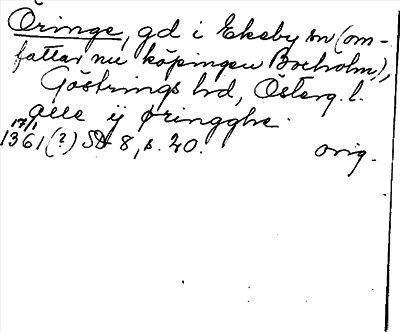 Öringe, gd i Ekeby sn (om-
fattar nu köpingen Boxholm),
Göstrings hd, Österg. l.
Aale ij øringghe.
17/1
1361(?) SD 8, s. 20. orig.